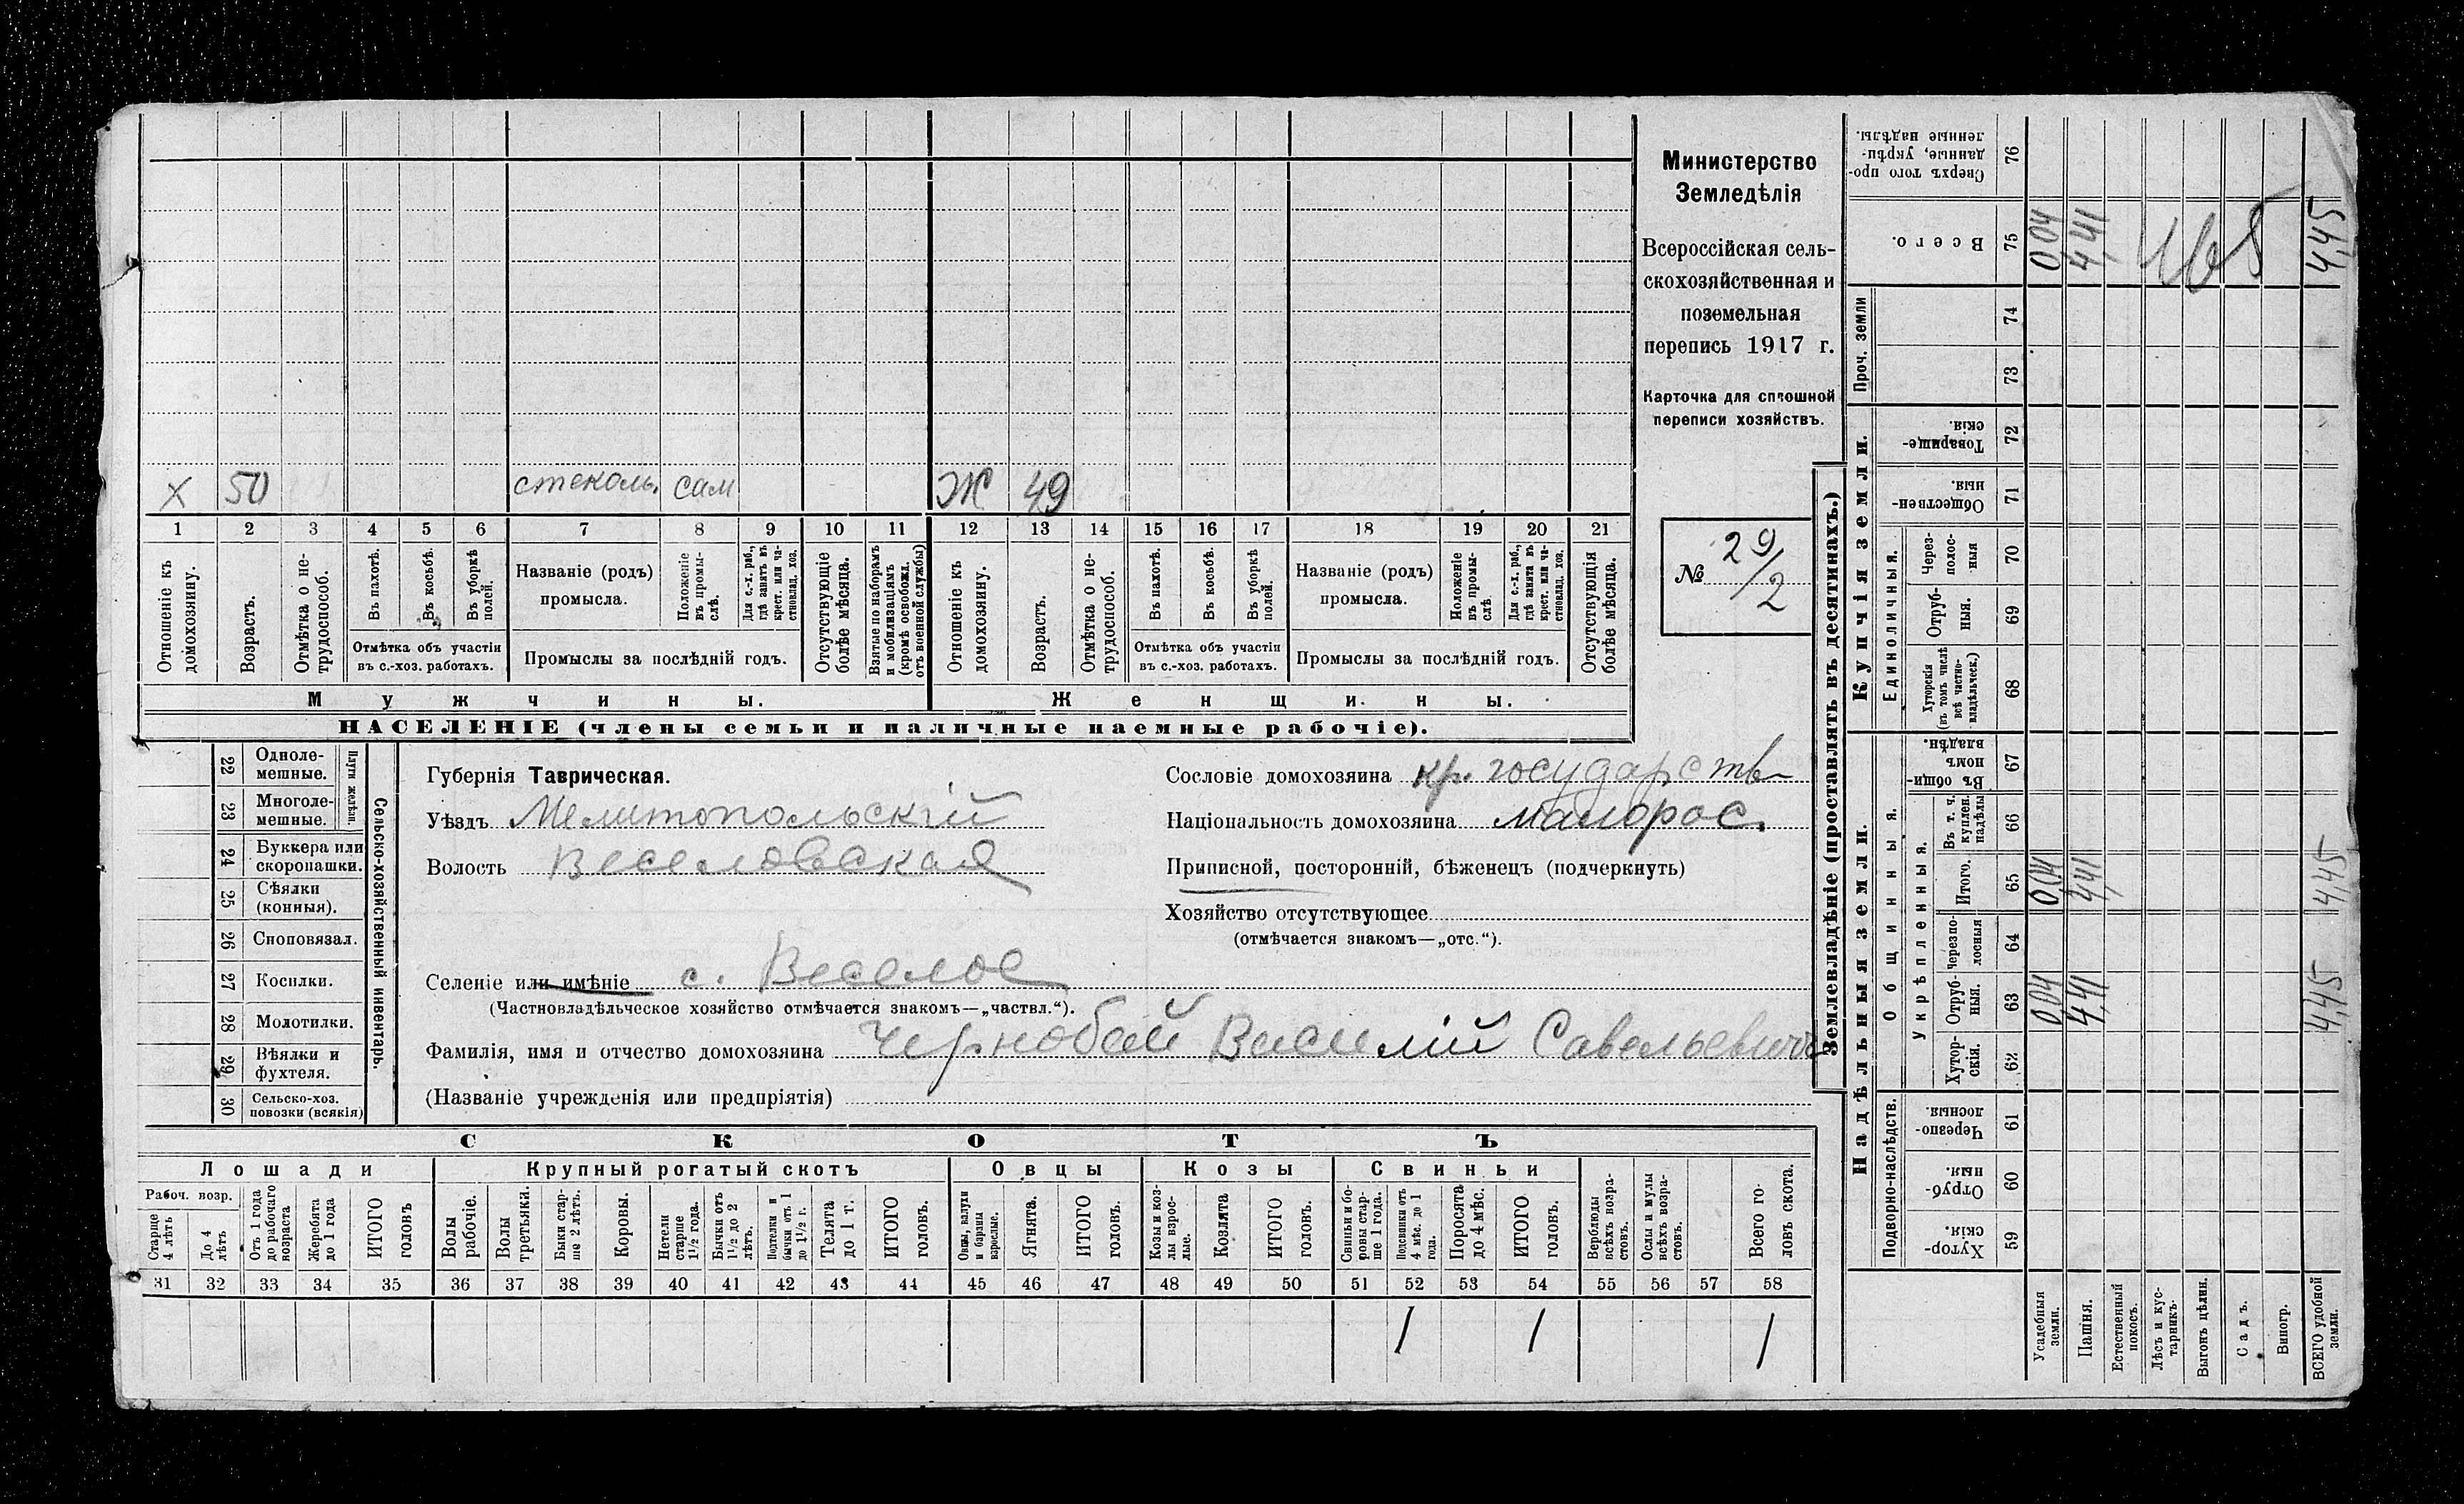 Министерство
Земледѣлія
Всероссійская сель-
скохозяйственная и
поземельная
перепись 1917 г.
Карточка для сплошной
переписи хозяйствъ.
№ 29/2
Х 50 стеколь. сам Ж 49
1 2 3 4 5 6 7 8 9 10 11 12 13 14 15 16 17 18 19 20 21
Отношеніе къ домохозяину.
Возрастъ.
Отмѣтка о не-трудоспособ.
Въ пахотѣ.
Въ косьбѣ.
Въ уборкѣ полей.
Отмѣтка объ участіи
въ с.-хоз. работахъ.
Названіе (родъ)
промысла.
Положеніе въ промы-слѣ.
Для с.-х. раб., гдѣ занятъ въ крест. или ча-стновлад. хоз.
Промыслы за послѣдній годъ.
Отсутствующіе болѣе мѣсяца.
Взятые по наборамъ и мобилизаціямъ (кромѣ освобожд. отъ военной службы)
Отношеніе къ домохозяину.
Возрастъ.
Отмѣтка о не-трудоспособ.
Въ пахотѣ.
Въ косьбѣ.
Въ уборкѣ полей.
Отмѣтка объ участіи
въ с.-хоз. работахъ.
Названіе (родъ)
промысла.
Положеніе въ промы-слѣ
Для с.-х. раб., гдѣ занята въ крест. или ча-стновлад. хоз.
Промыслы за послѣдній годъ.
Отсутствующія болѣе мѣсяца.
Мужчины.
Женщины.
НАСЕЛЕНІЕ (члены семьи и наличные наемные рабочіе).
22 Одноле-мешные.
23 Многоле-мешные.
Плуги желѣзн.
24 Буккера или скоропашки.
25 Сѣялки (конныя).
26 Сноповязал.
27 Косилки.
28 Молотилки.
29 Вѣялки и фухтеля.
30 Сельско-хоз. повозки (всякія)
Сельско-хозяйственный инвентарь.
Губернія Таврическая.
Уѣздъ Мелитопольскій
Волость Веселовская
Селеніе или имѣніе с. Веселое
(Частновладѣльческое хозяйство отмѣчается знакомъ—„частвл.“).
Фамилія, имя и отчество домохозяина Чернобай Василій Савельевичъ
(Названіе учрежденія или предпріятія)
Сословіе домохозяина кр. государств
Національность домохозяина малорос.
Приписной, посторонній, бѣженецъ (подчеркнуть)
Хозяйство отсутствующее
(отмѣчается знакомъ—„отс.“).
СКОТЪ
Лошади
Крупный рогатый скотъ
Овцы
Козы
Свиньи
Рабоч. возр.
Старше 4 лѣтъ
До 4 лѣтъ
Отъ 1 года до рабочаго возраста
Жеребята до 1 года
ИТОГО головъ
Волы рабочіе.
Волы третьяки.
Быки стар-ше 2 лѣтъ.
Коровы.
Нетели старше 1½ года.
Бычки отъ 1½ до 2 лѣтъ.
Подтелки и бычки отъ 1 до 1½ г.
Телята до 1 г.
ИТОГО головъ.
Овцы, валухи и бараны взрослые.
Ягнята.
ИТОГО головъ.
Козы и коз-лы взрос-лые.
Козлята
ИТОГО головъ.
Свиньи и бо-ровы стар-ше 1 года.
Подсвинки отъ 4 мѣс. до 1 года.
Поросята до 4 мѣс.
ИТОГО головъ.
Верблюды всѣхъ возра-стовъ.
Ослы и мулы всѣхъ возра-стовъ.
Всего го-ловъ скота.
31 32 33 34 35 36 37 38 39 40 41 42 43 44 45 46 47 48 49 50 51 52 53 54 55 56 57 58
1 1 1
Землевладѣніе (проставлять въ десятинахъ.)
Надѣльныя земли.
Купчія земли.
Проч. земли
Подворно-наслѣдств.
Общинныя.
Укрѣпленныя.
Единоличныя.
59 Хутор-скія.
60 Отруб-ныя.
61 Черезпо-лосныя.
62 Хутор-скія.
63 Отруб-ныя. 0,04 4,41 4,45
64 Черезпо-лосныя
65 Итого. 0,04 4,41 4,45
66 Въ т. ч. куплен. надѣлы
67 Въ общи-номъ владѣн.
68 Хуторскія (въ томъ числѣ всѣ частно-владѣльческ.)
69 Отруб-ныя.
70 Через-полос-ныя
71 Обществен-ныя.
72 Товарище-скія.
73
74
75 Всего. 0,04 4,41 4,45
76 Сверхъ того про-данные, укрѣп-ленные надѣлы.
Усадебныя земли.
Пашня.
Естественный покосъ.
Лѣсъ и кус-тарникъ.
Выгонъ цѣлин.
Садъ.
Виногр.
ВСЕГО удобной земли.